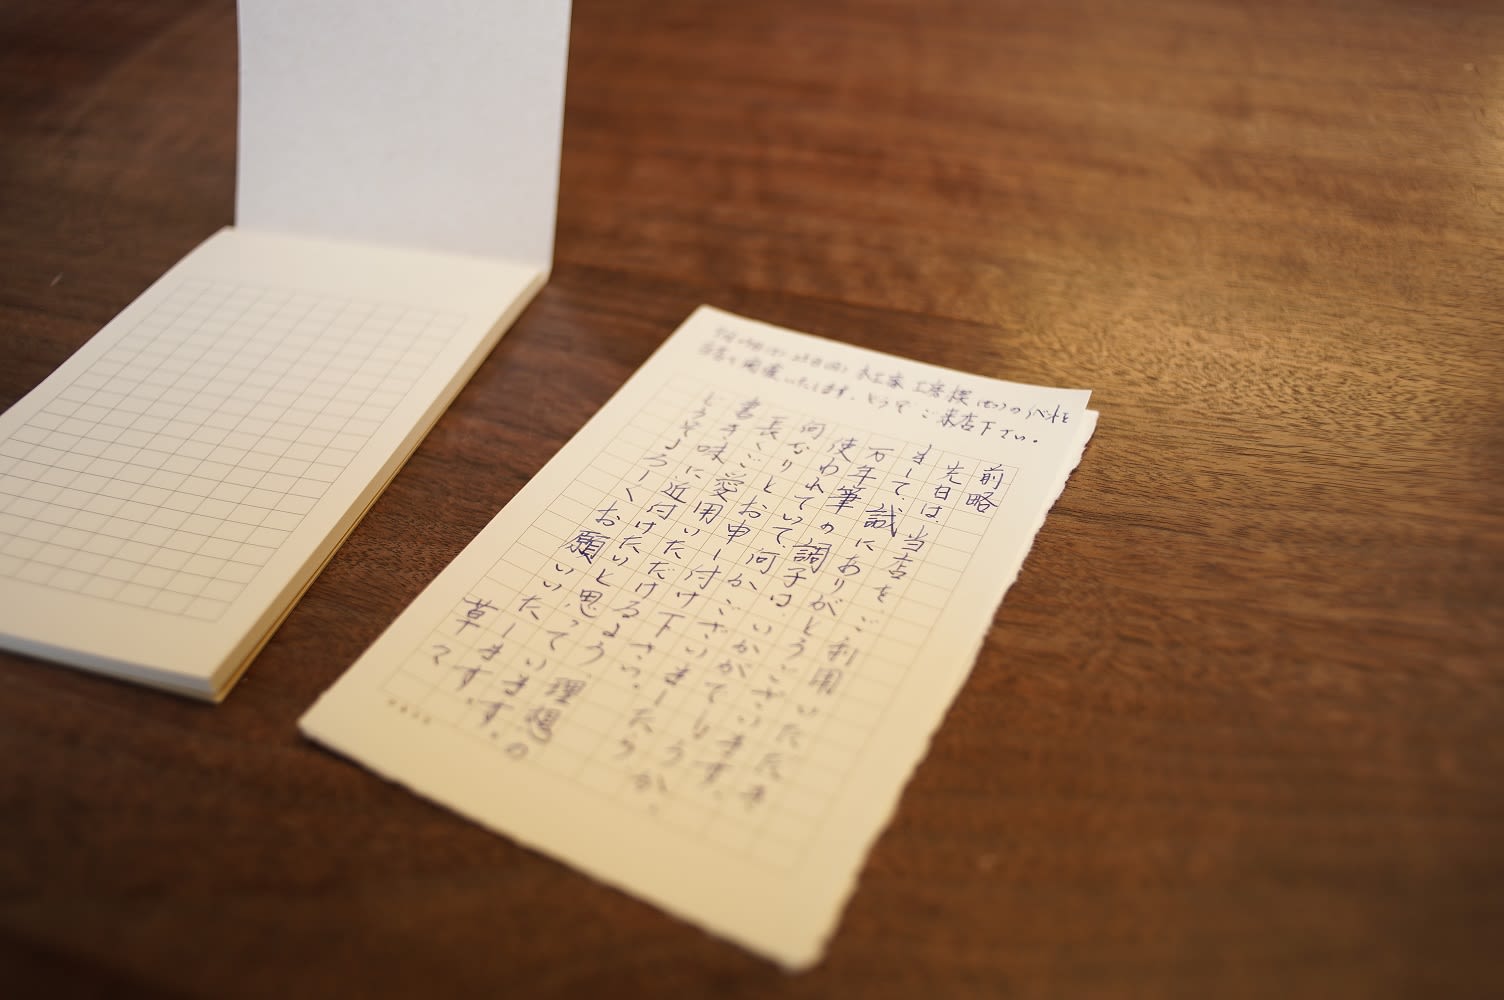 木工家 工房楔(せつ)のイベントを
当店で開催いたします。どうぞ ご来店下さい。
前略
先日は、当店をご利用いただき
まして、誠にありがとうございます。
万年筆の調子は、いかがでしょうか、
使われていて、何かございましたら
何なりとお申し付け下さい。
長くご愛用いただけるよう、理想の
書き味に近付けたいと思っています。
どうぞよろしくお願いいたします。
草々